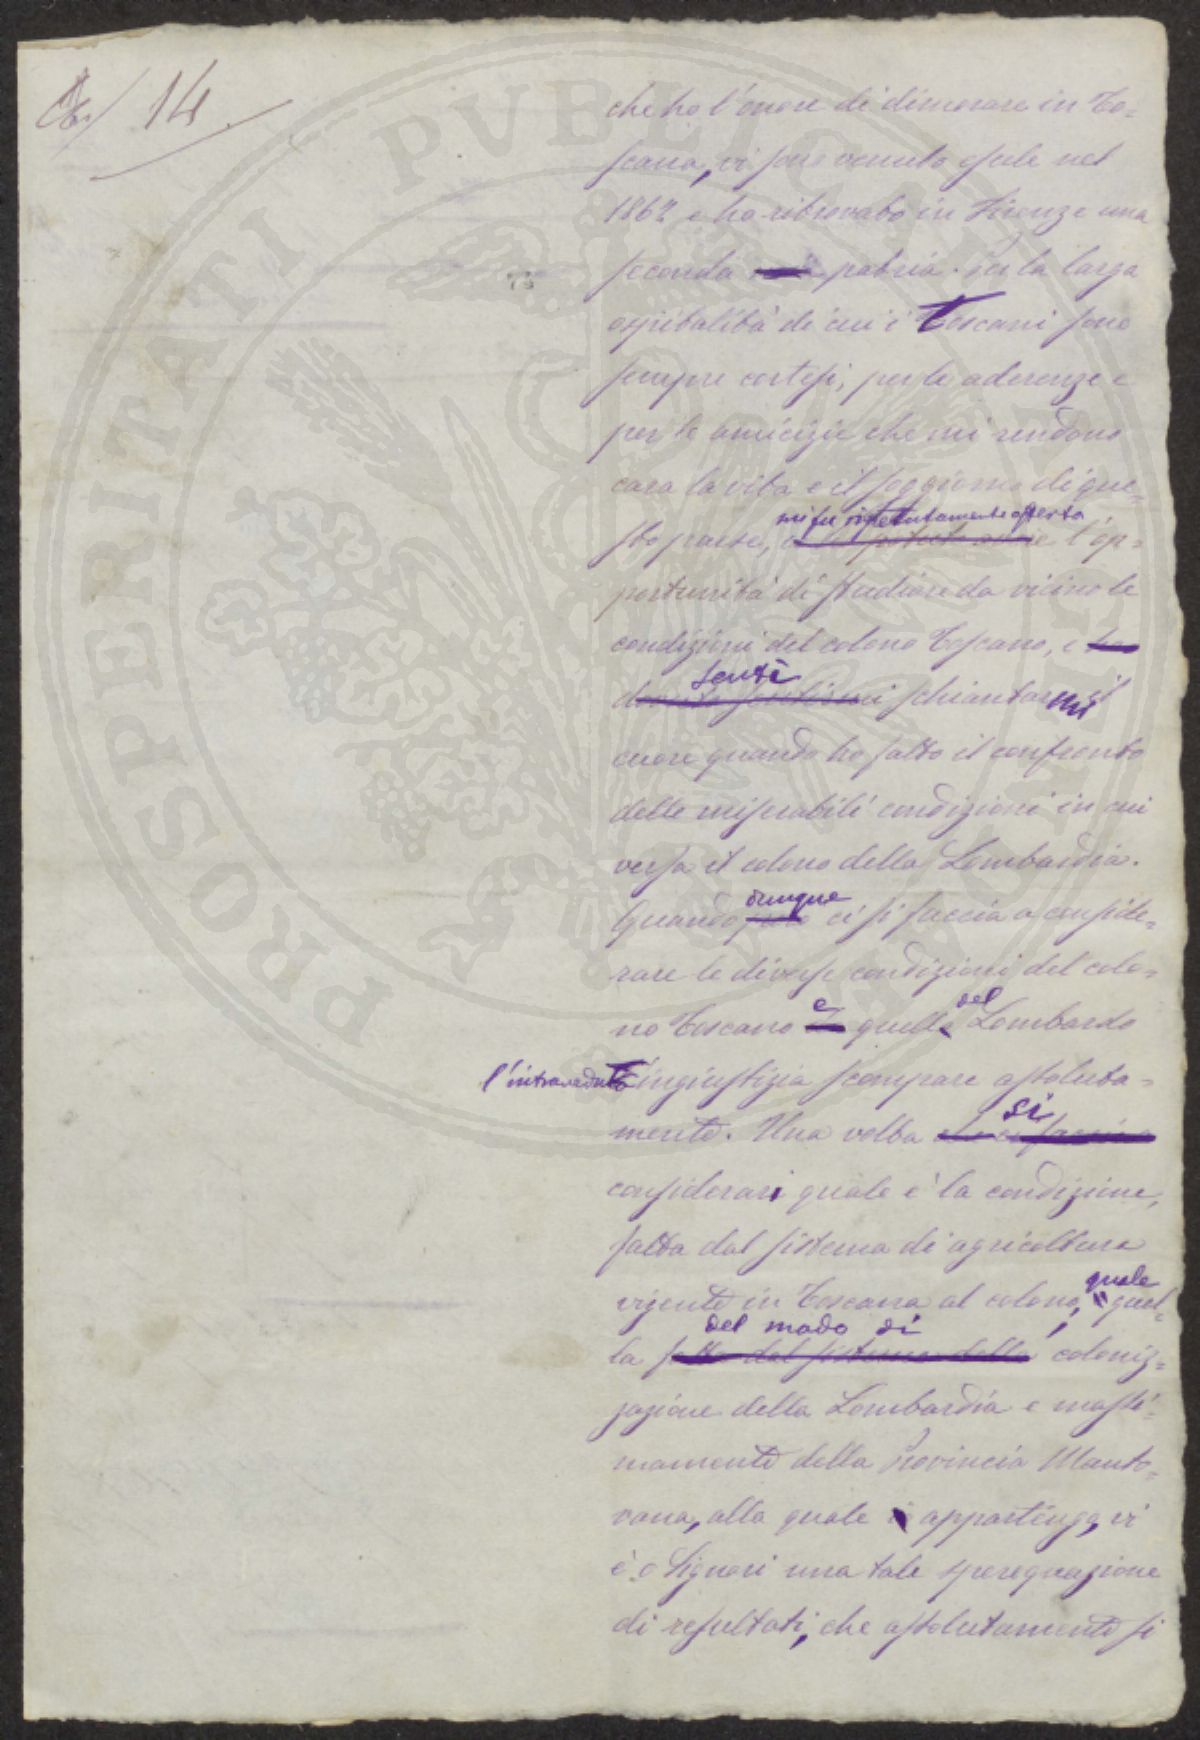 14
che ho l'onore di dimorare in To=
scana, vi sono venuto esule nel
1862 e ho ritrovato in Firenze una
seconda patria. Per la larga
ospitalità di cui i Toscani sono
sempre cortesi, per le aderenze e
per le amicizie che mi rendono
cara la vita e il soggiorno di que=
mi fu ripetutamente offerta
sto paese, l'op=
portunità di studiare da vicino le
condizioni del colono Toscano, e ho
sentii
dovuto sentirmi schiantarmi il
cuore quando ho fatto il confronto
delle miserabili condizioni in cui
versa il colono della Lombardia.
dunque
Quando ci si faccia a conside=
rare le diverse condizioni del colo=
e del
no Toscano quelle Lombardo
l'intraveduta ingiustizia scompare assoluta=
si
mente. Una volta che ci faccia a
considerari quale è la condizione,
fatta dal sistema di agricoltura
quale
vigente in Toscana al colono, quel=
del modo di
la fatta dal sistema della coloniz=
zazione della Lombardia e massi=
mamente della Provincia Manto=
vana, alla quale appartengo, vi
è o Signori una tale sperequazione
di resultati, che assolutamente si
PROSPERITATI PVBLICAE